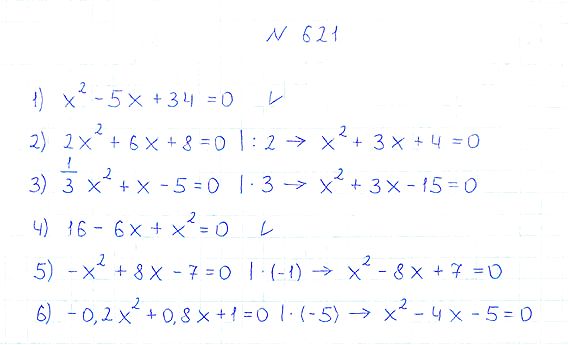 N 621
1) x² - 5x + 34 = 0 ✓
2) 2x² + 6x + 8 = 0 | : 2 → x² + 3x + 4 = 0
3) 1/3 x² + x - 5 = 0 | · 3 → x² + 3x - 15 = 0
4) 16 - 6x + x² = 0 ✓
5) -x² + 8x - 7 = 0 | · (-1) → x² - 8x + 7 = 0
6) -0,2x² + 0,8x + 1 = 0 | · (-5) → x² - 4x - 5 = 0